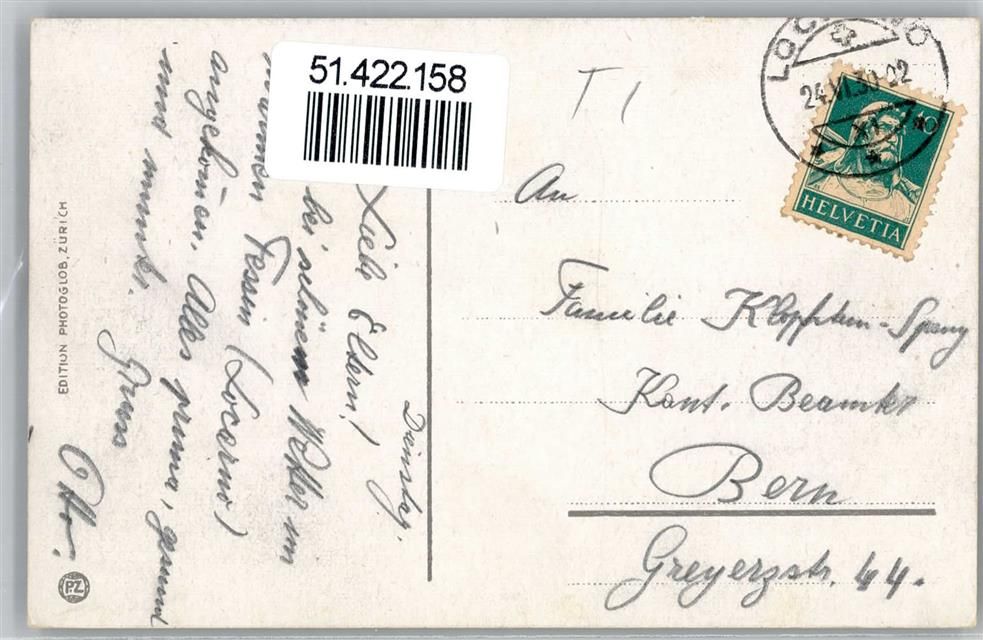 51.422.158
T 1
24.XI.30.02
XI
10
HELVETIA
An
Familie
Kant. Beamter
Bern
Greyerzstr. 44.
Dienstg.
Liebe Eltern!
bei schönem Wetter im
Tessin (Locarno)
angekommen. Alles prima, gesund
und munter.
Gruss
Otto.
EDITION PHOTOGLOB, ZÜRICH
PZ